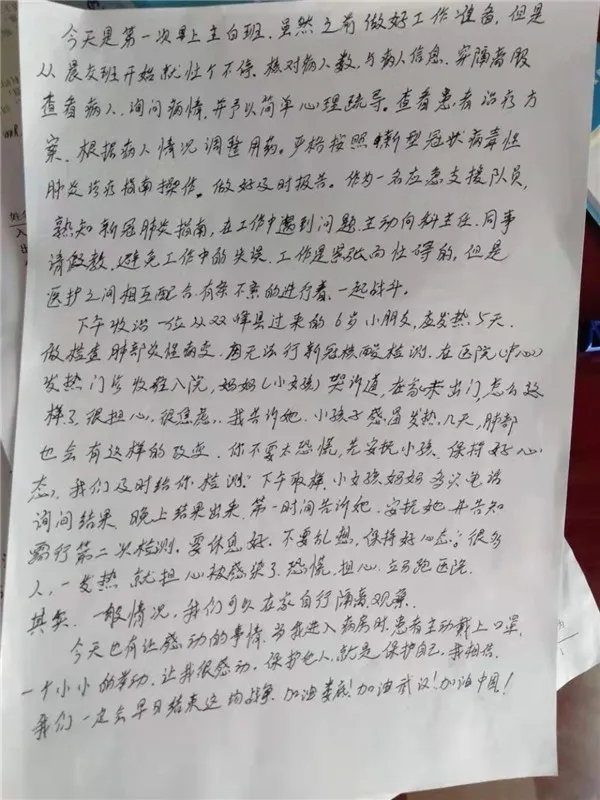 今天是第一次早上主白班.虽然之前做好工作准备.但是
从晨交班开始就忙个不停.核对病人数,与病人信息.穿隔离服
查看病人.询问病情.并予以简单心理疏导.查看患者治疗方
案.根据病人情况调整用药.严格按照新型冠状病毒性
肺炎诊疗指南操作.做好及时报告.作为一名应急支援队员,
熟知新冠肺炎指南,在工作中遇到问题.主动向科主任.同事
请教.避免工作中的失误.工作是紧张而忙碌的.但是
医护之间相互配合.有条不紊的进行着.一起战斗.
下午收治一位从双峰县过来的6岁小朋友,应发热5天.
做检查肺部炎症病变.因无法行新冠核酸检测.在医院(中心)
发热门诊收住入院,妈妈(小女孩)哭诉道,在家未出门怎么这
样了.很担心.很焦虑..我告诉她.小孩子感冒发热几天,肺部
也会有这样的改变.你不要太恐慌,先安抚小孩.保持好心
态,我们及时给你检测.下午取样.小女孩妈妈多次电话
询问结果.晚上结果出来.第一时间告诉她.安抚她.并告知
需行第二次检测.要休息好.不要乱想.保持好心态;很多
人,一发热就担心被感染了.恐慌.担心.立马跑医院.
其实.一般情况,我们可以在家自行隔离观察.
今天也有让感动的事情.当我进入病房时.患者主动戴上口罩.
一个小小的举动.让我很感动.保护他人,就是保护自己.我相信.
我们一定会早日结束这场战争.加油娄底!加油武汉!加油中国!